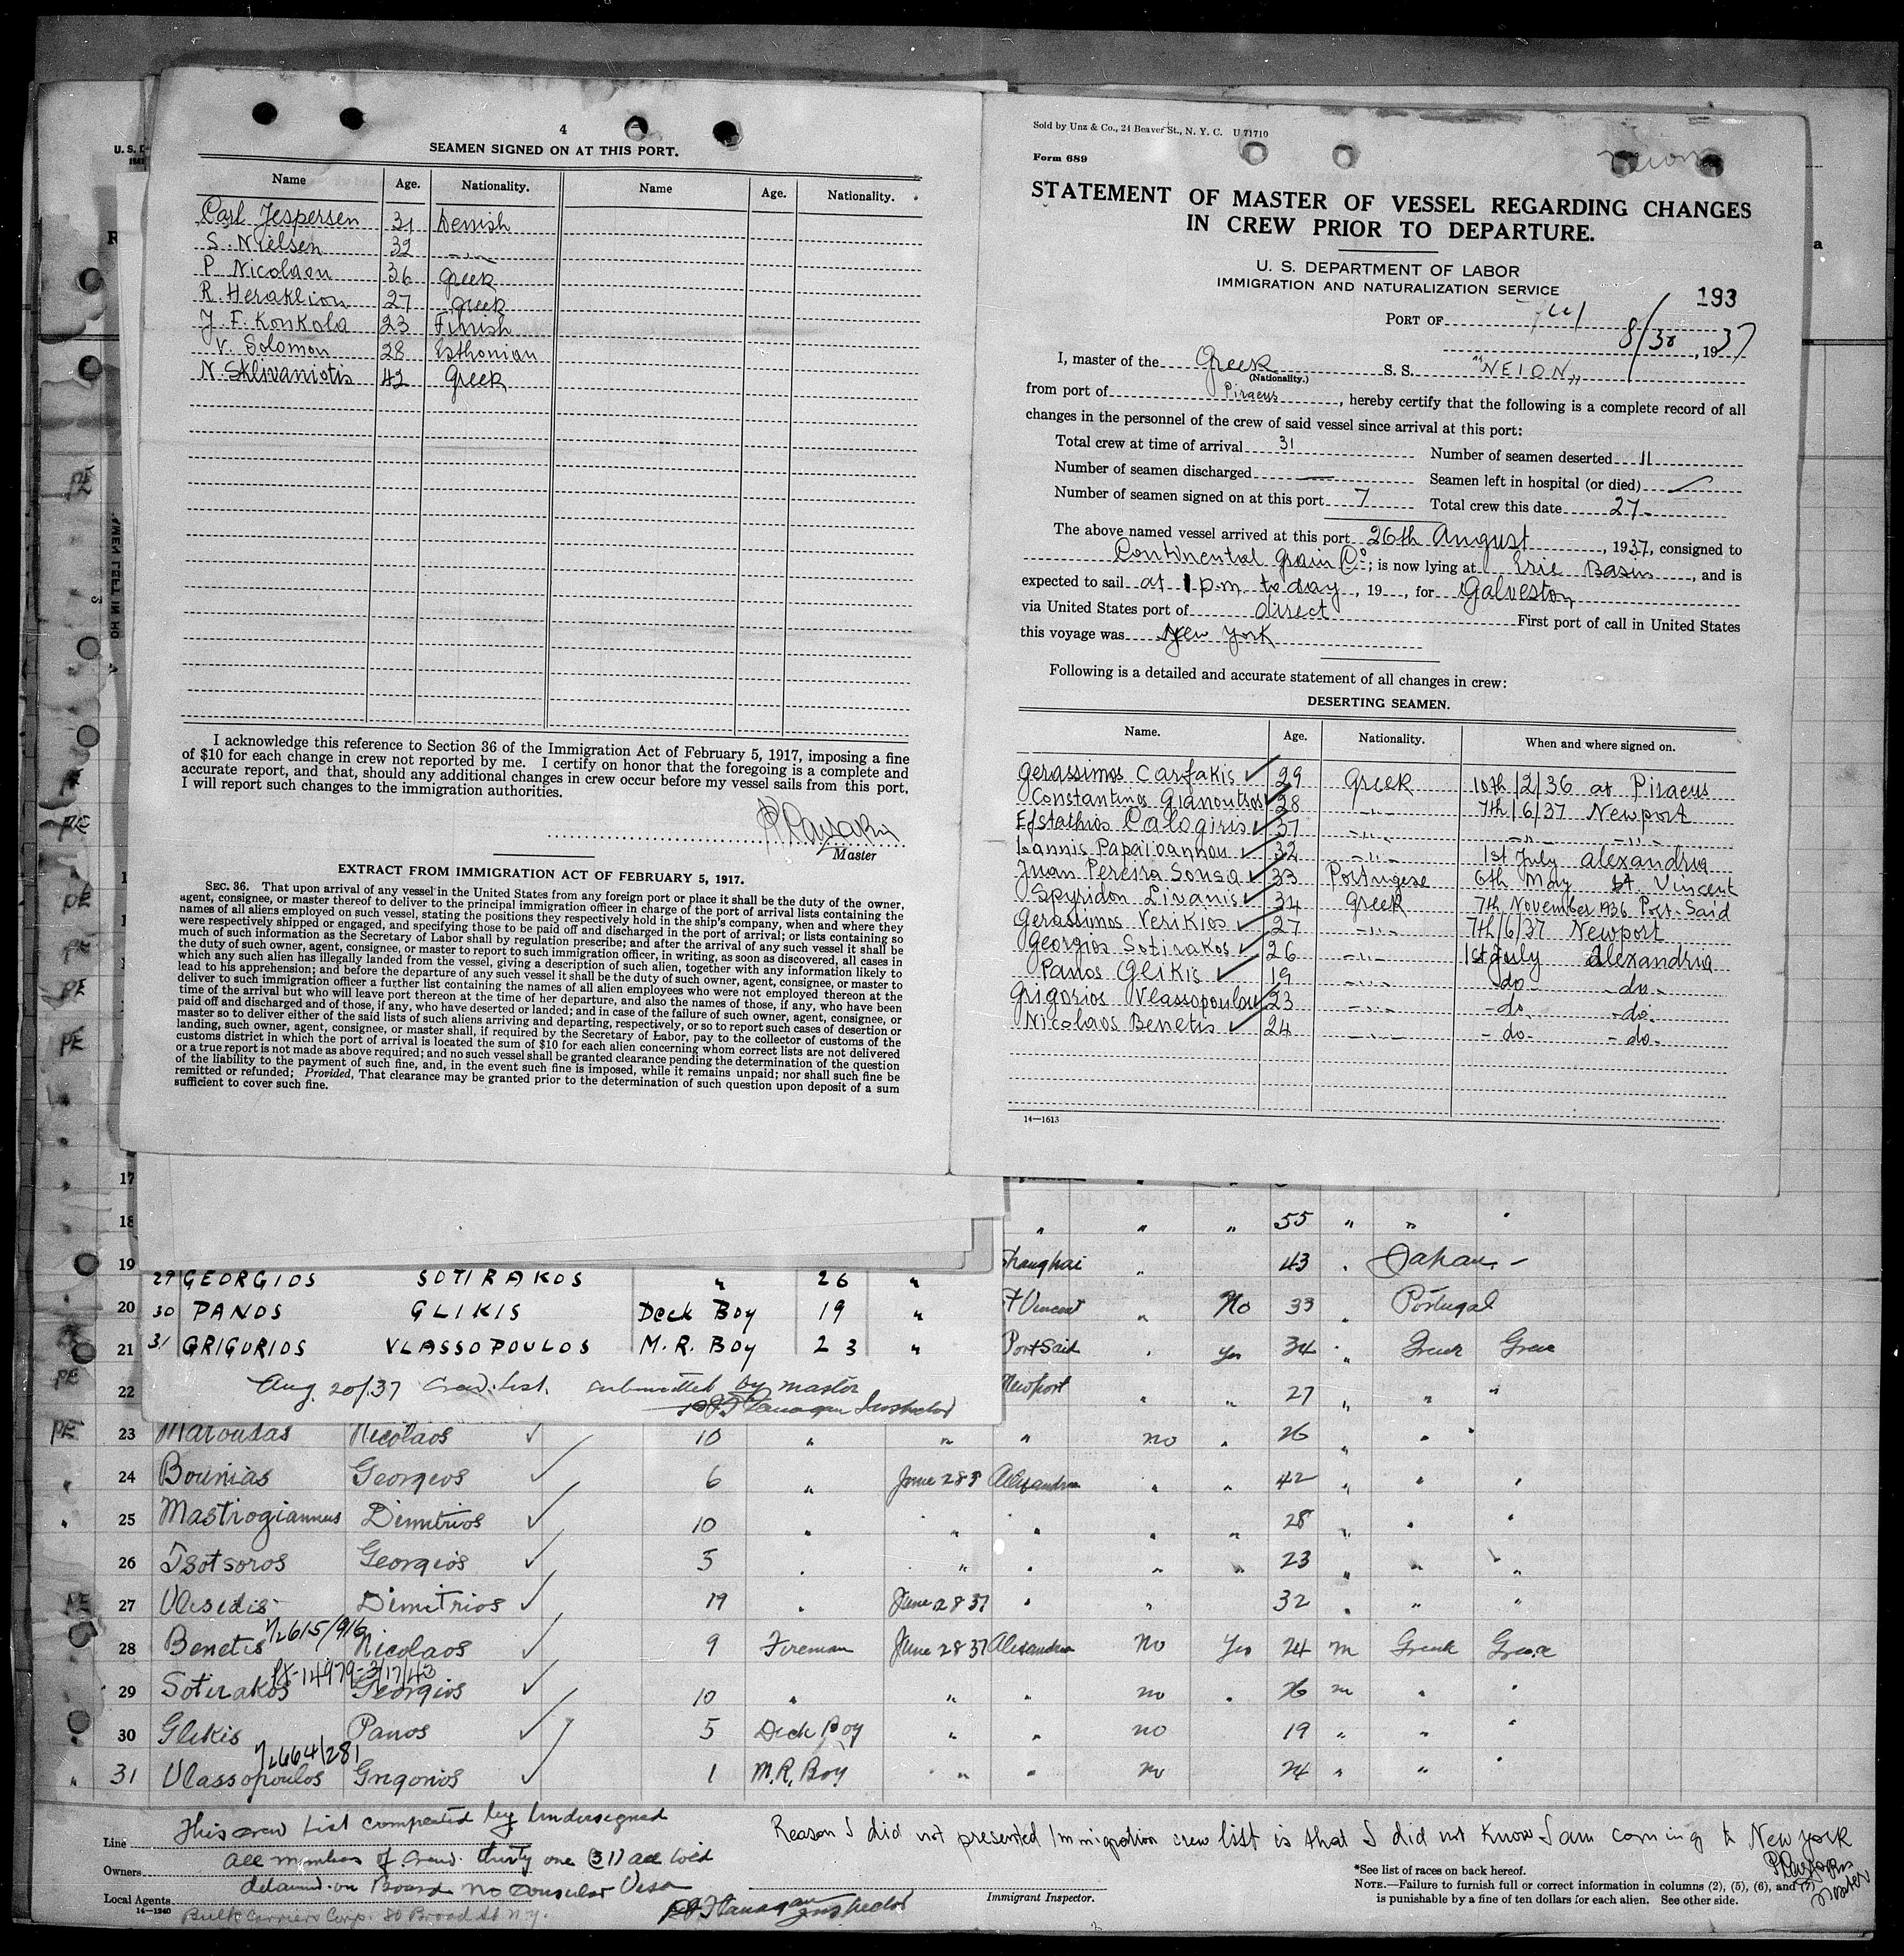 4
SEAMEN SIGNED ON AT THIS PORT.
Name Age. Nationality. Name Age. Nationality.
Carl Jespersen 31 Denish
S. Nielsen 32 -„-
P. Nicolaou 36 Greek
R. Heraklion 27 Greek
J. F. Konkola 23 Finish
V. Solomon 28 Esthonian
N. Sklivaniotis 42 Greek
I acknowledge this reference to Section 36 of the Immigration Act of February 5, 1917, imposing a fine
of $10 for each change in crew not reported by me. I certify on honor that the foregoing is a complete and
accurate report, and that, should any additional changes in crew occur before my vessel sails from this port,
I will report such changes to the immigration authorities.
Master
EXTRACT FROM IMMIGRATION ACT OF FEBRUARY 5, 1917.
SEC. 36. That upon arrival of any vessel in the United States from any foreign port or place it shall be the duty of the owner,
agent, consignee, or master thereof to deliver to the principal immigration officer in charge of the port of arrival lists containing the
names of all aliens employed on such vessel, stating the positions they respectively hold in the ship's company, when and where they
were respectively shipped or engaged, and specifying those to be paid off and discharged in the port of arrival; or lists containing so
much of such information as the Secretary of Labor shall by regulation prescribe; and after the arrival of any such vessel it shall be
the duty of such owner, agent, consignee, or master to report to such immigration officer, in writing, as soon as discovered, all cases in
which any such alien has illegally landed from the vessel, giving a description of such alien, together with any information likely to
lead to his apprehension; and before the departure of any such vessel it shall be the duty of such owner, agent, consignee, or master to
deliver to such immigration officer a further list containing the names of all alien employees who were not employed thereon at the
time of the arrival but who will leave port thereon at the time of her departure, and also the names of those, if any, who have been
paid off and discharged and of those, if any, who have deserted or landed; and in case of the failure of such owner, agent, consignee, or
master so to deliver either of the said lists of such aliens arriving and departing, respectively, or so to report such cases of desertion or
landing, such owner, agent, consignee, or master shall, if required by the Secretary of Labor, pay to the collector of customs of the
customs district in which the port of arrival is located the sum of $10 for each alien concerning whom correct lists are not delivered
or a true report is not made as above required; and no such vessel shall be granted clearance pending the determination of the question
of the liability to the payment of such fine, and, in the event such fine is imposed, while it remains unpaid; nor shall such fine be
remitted or refunded; Provided, That clearance may be granted prior to the determination of such question upon deposit of a sum
sufficient to cover such fine.
Sold by Unz & Co., 24 Beaver St., N. Y. C. U 71710
Form 689
STATEMENT OF MASTER OF VESSEL REGARDING CHANGES
IN CREW PRIOR TO DEPARTURE.
U. S. DEPARTMENT OF LABOR
IMMIGRATION AND NATURALIZATION SERVICE
193
PORT OF
8/30, 1937
I, master of the Greek S. S. "NEION„
(Nationality.)
from port of Piraeus, hereby certify that the following is a complete record of all
changes in the personnel of the crew of said vessel since arrival at this port:
Total crew at time of arrival 31 Number of seamen deserted 11
Number of seamen discharged — Seamen left in hospital (or died)
Number of seamen signed on at this port 7 Total crew this date 27-
The above named vessel arrived at this port 26th August, 1937, consigned to
Continental Grain Co; is now lying at Erie Basin, and is
expected to sail at 1 p.m today, 19 , for Galveston
via United States port of direct First port of call in United States
this voyage was New York
Following is a detailed and accurate statement of all changes in crew:
DESERTING SEAMEN.
Name. Age. Nationality. When and where signed on.
Gerassimos Carfakis ✓ 29 Greek 10th/2/36 at Piraeus
Constantinos Gianoutsos ✓ 28 -„- 7th/6/37 Newport
Efstathios Calogiris ✓ 37 -„- -„- -„-
Ioannis Papaioannou ✓ 32 -„- 1st July Alexandria
Juan Pereira Sousa ✓ 33 Portugese 6th May St. Vincent
Spyridon Livanis ✓ 34 Greek 7th November 1936 Port-Said
Gerassimos Verikios ✓ 27 -„- 7th/6/37 Newport
Georgios Sotirakos ✓ 26 -„- 1st July Alexandria
Panos Glikis ✓ 19 -„- -do- -do-
Grigorios Vlassopoulou ✓ 23 -„- -do- -do-
Nicolaos Benetis ✓ 24 -„- -do- -do-
14—1613
17
18 „ „ „ 55 „ „ "
19 Shanghai „ 43 „ Japan -
29 GEORGIOS SOTIRAKOS " 26 "
20 St Vincent „ No 33 „ Portugal
30 PANOS GLIKIS Deck Boy 19 "
21 Port Said „ Yes 34 „ Greek Greece
31 GRIGORIOS VLASSOPOULOS M. R. BOY 23 "
22 Newport „ „ 27 „ „ "
Aug 20/37 Crew list submitted by master
Flanagan Inspector
23 Maroudas Nicolaos ✓ 10 " " " no " 26 " "
24 Bounias Georgios ✓ 6 " June 28 37 Alexandria " " 42 " "
25 Mastrogiannis Dimitrios ✓ 10 " " " " " 28 " "
26 Tsotsoros Georgios ✓ 5 " " " " " 23 " " "
27 Dimitrios ✓ 19 " June 28 37 " " 32 " " "
28 Benetis Nicolaos ✓ 9 Fireman June 28 37 Alexandria No Yes 24 m Greek Greece
29 Sotirakos Georgios ✓ 10 " " " no " 26 m " "
30 Glikis Panos ✓ 5 Deck Boy " " no 19 " " "
31 Vlassopoulos Grigorios ✓ 1 M.R. Boy " " no 24 " " "
Line This crew list completed by Undersigned
Owners All members of crew thirty one (31) all told
Local Agents detained on Board no consular Visa
14—1240
Bulk Carriers Corp. 80 Broad St N.Y.
Flanagan Inspector
Immigrant Inspector.
Reason I did not presented Immigration crew list is that I did not know I am coming to New York
Master
*See list of races on back hereof.
NOTE.—Failure to furnish full or correct information in columns (2), (5), (6), and (7)
is punishable by a fine of ten dollars for each alien. See other side.